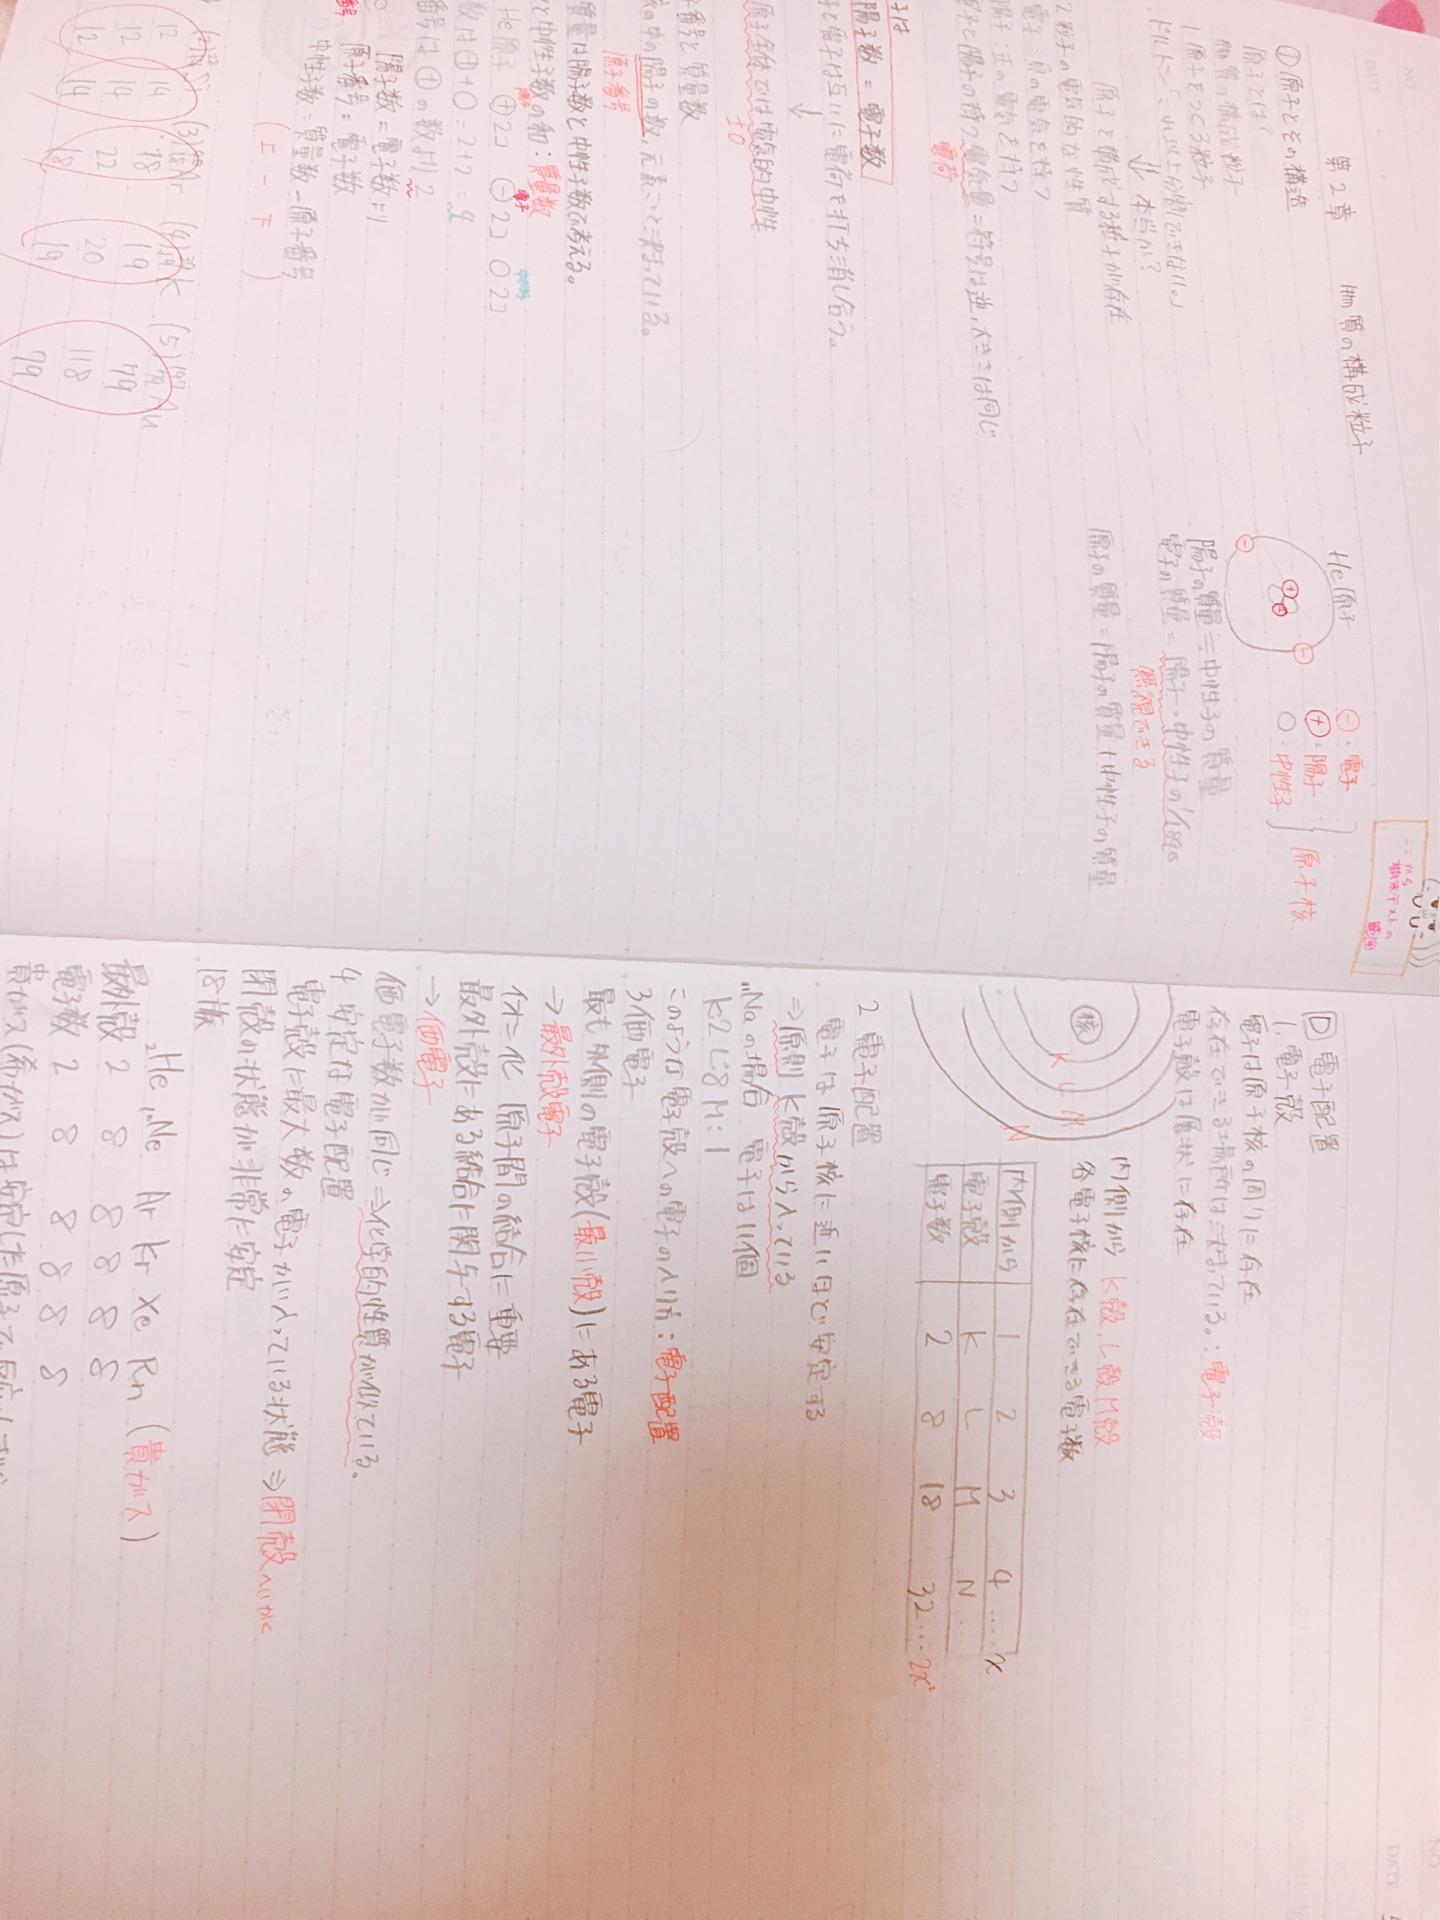 第2章 物質の構成粒子
① 原子とその構造
原子とは?
物質の構成粒子
1 原子をつくる粒子
ドルトン「これ以上分割できない。」
↓ 本当か?
原子を構成する粒子が存在
2 粒子の電気的な性質
電子:負の電気を持つ
陽子:正の電気を持つ
子と陽子の持つ電気量=符号は逆,大きさは同じ
電荷
子は
陽子数=電子数
子と電子は互いに電荷を打ち消し合う。
↓
原子全体では電気的中性
±0
子番号と質量数
の中の陽子の数,元素ごとに決まっている。
原子番号
質量は陽子数と中性子数で考える。
と中性子数の和:質量数
He原子 ⊕2コ ⊖2コ ○2コ
陽子 電子 中性子
数は⊕+○=2+2=4
番号は⊕の数より2
陽子数=電子数より
原子番号=電子数
中性子数=質量数-原子番号
(上-下)
(3) Ar (4) K (5) Au
12 14 18 19 79
12 14 22 20 118
12 14 18 19 79
He原子
⊖:電子
⊕:陽子
○:中性子
原子核
陽子の質量≒中性子の質量
電子の質量=陽子・中性子の1/1840
無視できる
原子の質量=陽子の質量+中性子の質量
ここから
テストの
範囲
D 電子配置
1.電子殻
電子は原子核の周りに存在
存在できる場所は決まっている。:電子殻
電子殻は層状に存在
核 K L M N
内側から K殻,L殻,M殻
各電子核に存在できる電子数
内側から 1 2 3 4 …… x
電子殻 K L M N …
電子数 2 8 18 32 … 2x²
2 電子配置
電子は原子核に近いほど安定する
⇒原則 K殻から入っている
₁₁Naの場合 電子は11個
K2 L:8 M:1
このような電子殻への電子の入り方:電子配置
3 価電子
最も外側の電子殻(最外殻)にある電子
→最外殻電子
イオン化 原子間の結合に重要
最外殻にある結合に関与する電子
→価電子
価電子数が同じ⇒化学的性質が似ている。
4 安定な電子配置
電子殻に最大数の電子が入っている状態⇒閉殻
閉殻の状態が非常に安定
18族
₂He ₁₀Ne Ar Kr Xe Rn(貴ガス)
最外殻 2 8 8 8 8 8
電子数 2 8 8 8 8 8
貴ガス(希ガス)は安定した原子で
NO
DATE
NO
DATE